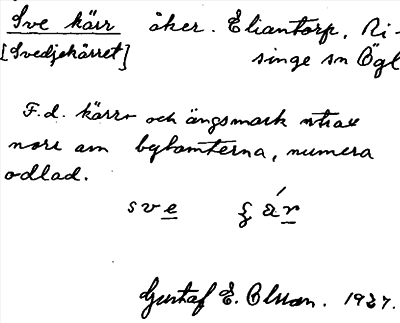 Sve kärr åker. Eliantorp, Ri-
[Svedjekärret] singe sn Ögl
F.d. kärr- och ängsmark strax
norr om bytomterna, numera
odlad.
sve
Gustaf E. Olsson. 1927.